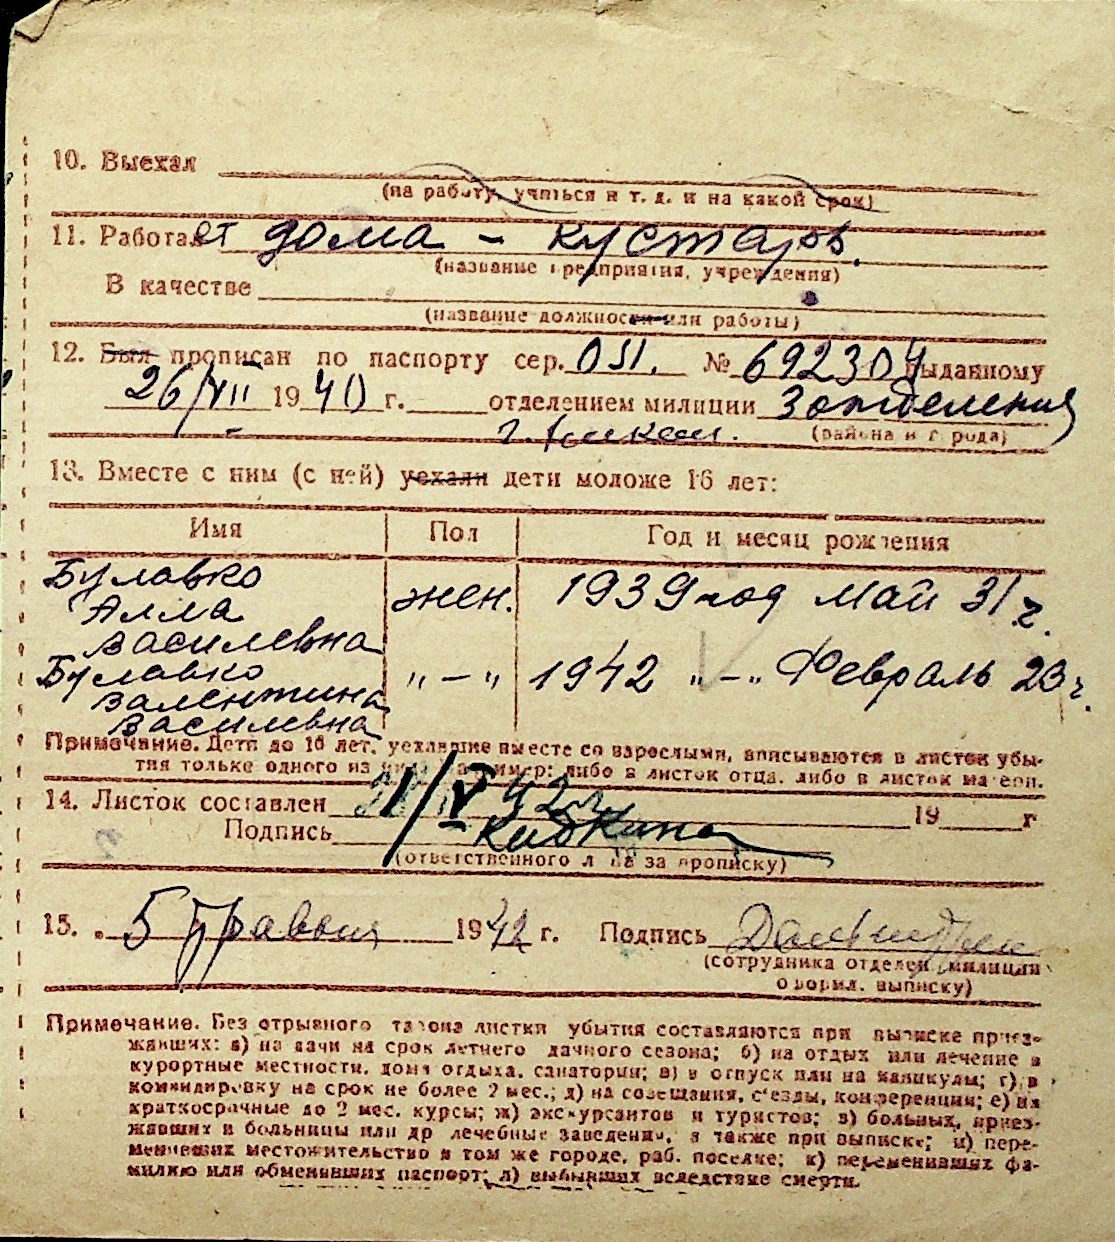 10. Выехал
(на работу, учиться и т. д. и на какой срок)
11. Работает дома - кустарь.
(название предприятия, учреждения)
В качестве
(название должности или работы)
12. Был прописан по паспорту сер. OSI. № 692304 выданному
26/VII 1940 г. отделением милиции 3 отделения
г.
(района и города)
13. Вместе с ним (с ней) уехали дети моложе 16 лет:
Имя Пол Год и месяц рождения
Булавко
Алла
Василевна жен. 1939 год май 31 г.
Булавко
Валентина
Василевна „ - „ 1942 „ - „ Февраль 23 г.
Примечание. Дети до 16 лет, уехавшие вместе со взрослыми, вписываются в листок убы-
тия только одного из них, например: либо в листок отца, либо в листок матери.
14. Листок составлен 21/IV 42 г. 19 г
Подпись
(ответственного лица за прописку)
15. 5 травня 1942 г. Подпись
(сотрудника отделен. милиции
оформл. выписку)
Примечание. Без отрывного талона листки убытия составляются при выписке приез-
жавших: а) на дачи на срок летнего дачного сезона; б) на отдых или лечение в
курортные местности, дома отдыха, санатории; в) в отпуск или на каникулы; г) в
командировку на срок не более 2 мес.; д) на совещания, с'езды, конференции; е) на
краткосрочные до 2 мес. курсы; ж) экскурсантов и туристов; з) больных, приез-
жавших в больницы или др лечебные заведения, а также при выписке; и) пере-
менивших местожительство в том же городе, раб. поселке; к) переменивших фа-
милию или обменивших паспорт; л) выбывших вследствие смерти.